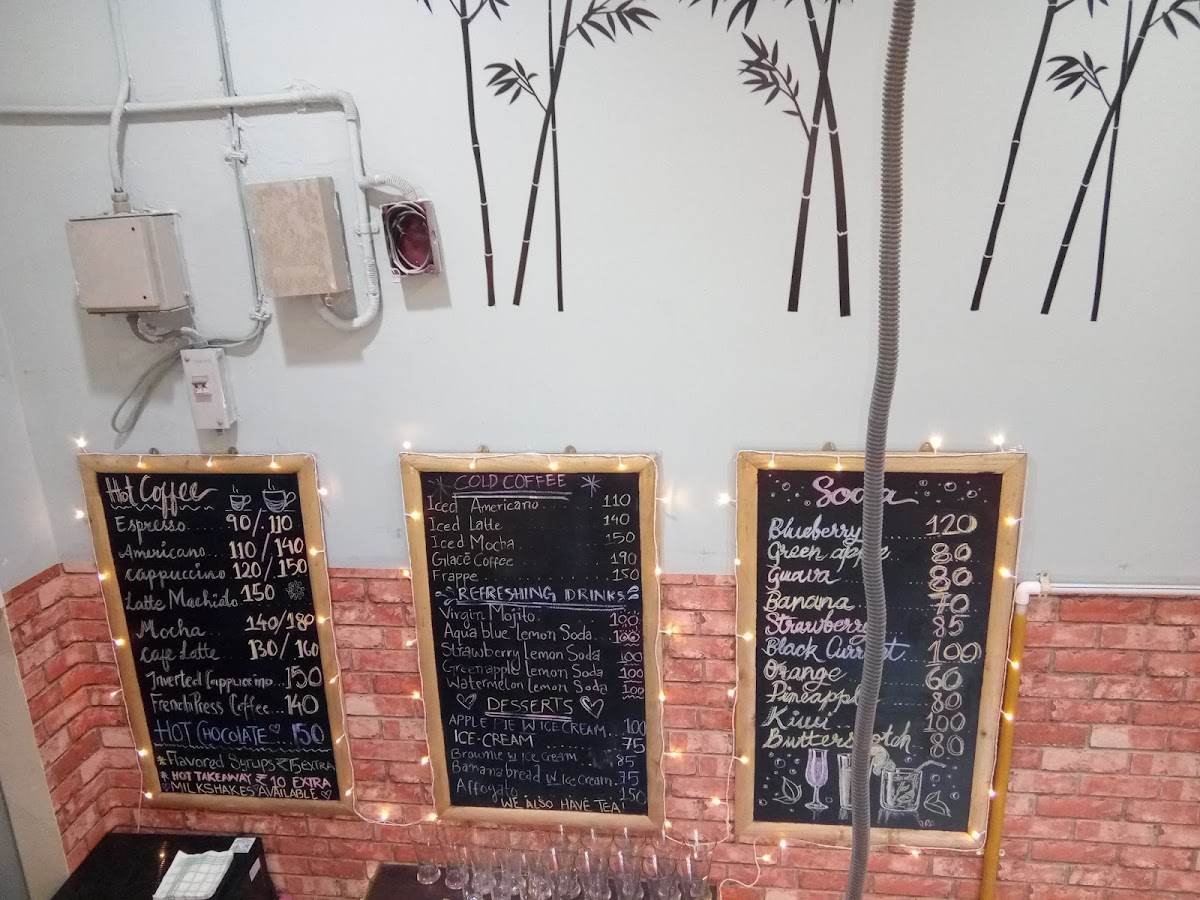 Hot Coffee
Espresso... 90/110
Americano... 110/140
Cappuccino 120/150
Latte Machiato 150
Mocha... 140/180
Cafe Latte 130/160
Inverted Cappuccino... 150
French Press Coffee.. 140
HOT CHOCOLATE 150
*Flavored Syrups ₹15 EXTRA
* HOT TAKEAWAY ₹10 EXTRA
MILKSHAKES AVAILABLE
COLD COFFEE
Iced Americano... 110
Iced Latte 140
Iced Mocha.. 150
Glacé Coffee 190
Frappe 150
REFRESHING DRINKS
Virgin Mojito. 100
Aqua blue lemon Soda.. 100
Strawberry Lemon Soda 100
Green apple Lemon Soda 100
Watermelon Lemon Soda 100
DESSERTS
APPLE PIE W ICE CREAM... 100
ICE-CREAM 75
Brownie w Ice cream 85
Banana bread w Ice cream. 75
Affogato 150
WE ALSO HAVE TEA!
Soda
Blueberry 120
Green apple 80
Guava 80
Banana 70
Strawberry 85
Black Currant. 100
Orange 60
Pineapple 80
Kiwi 100
Butterscotch 80